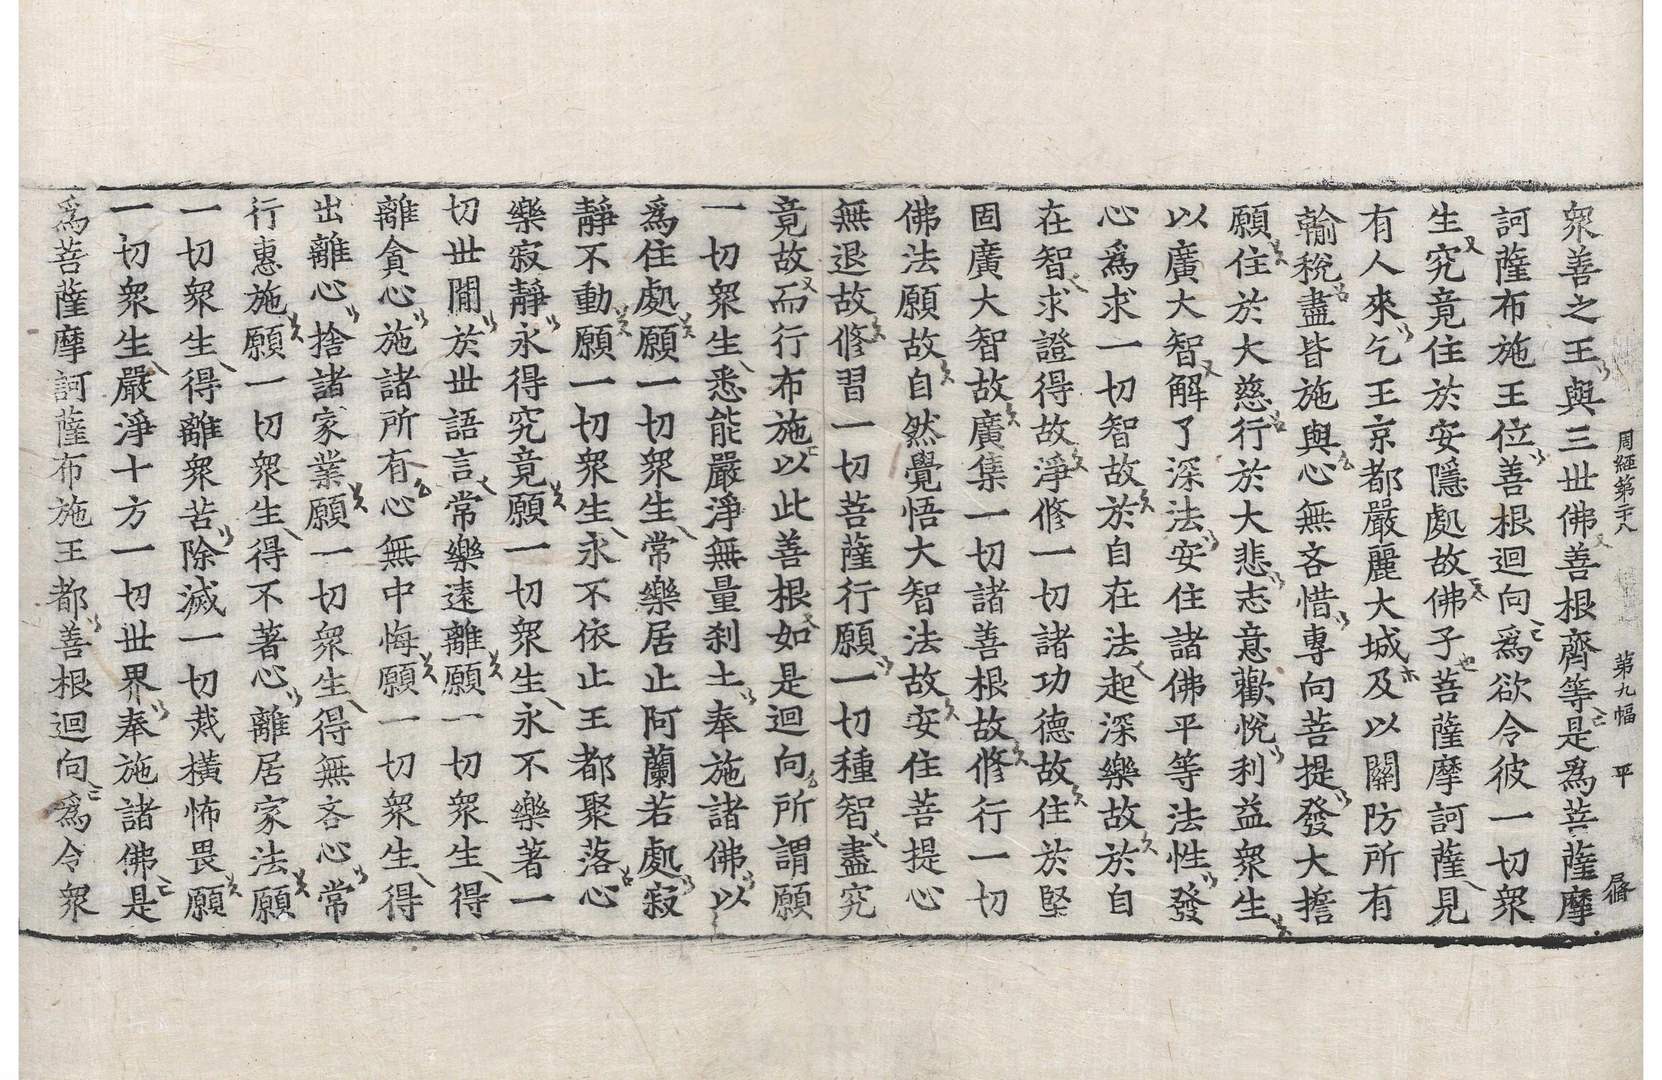 衆善之王與三世佛善根齊等是爲菩薩摩
訶薩布施王位善根迴向爲欲令彼一切衆
生究竟住於安隱處故佛子菩薩摩訶薩見
有人來乞王京都嚴麗大城及以關防所有
輸稅盡皆施與心無吝惜專向菩提發大擔
願住於大慈行於大悲志意歡悅利益衆生
以廣大智解了深法安住諸佛平等法性發
心爲求一切智故於自在法起深樂故於自
在智求證得故淨修一切諸功德故住於堅
固廣大智故廣集一切諸善根故修行一切
佛法願故自然覺悟大智法故安住菩提心
無退故修習一切菩薩行願一切種智盡究
竟故而行布施以此善根如是迴向所謂願
一切衆生悉能嚴淨無量刹土奉施諸佛以
爲住處願一切衆生常樂居止阿蘭若處寂
靜不動願一切衆生永不依止王都聚落心
樂寂靜永得究竟願一切衆生永不樂著一
切世間於世語言常樂遠離願一切衆生得
離貪心施諸所有心無中悔願一切衆生得
出離心捨諸家業願一切衆生得無吝心常
行惠施願一切衆生得不著心離居家法願
一切衆生得離衆苦除滅一切烖橫怖畏願
一切衆生嚴淨十方一切世界奉施諸佛是
爲菩薩摩訶薩布施王都善根迴向爲令衆
周經第二十八 第九幅 平